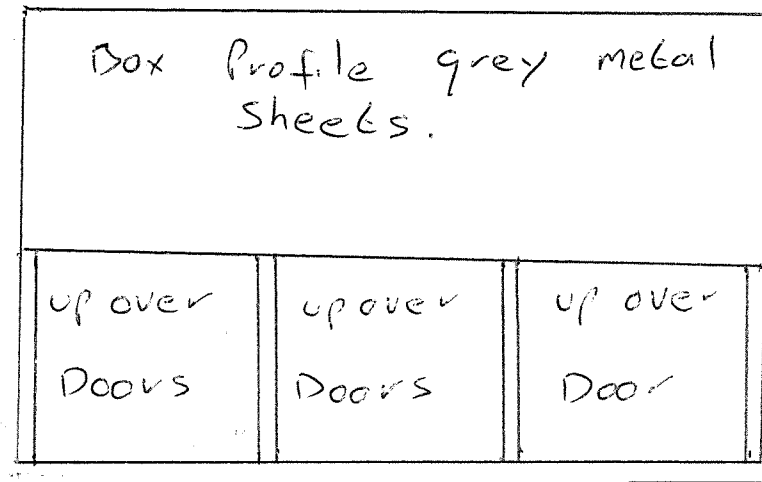 Box Profile grey metal
Sheets.
up over
Doors
up over
Doors
up over
Door